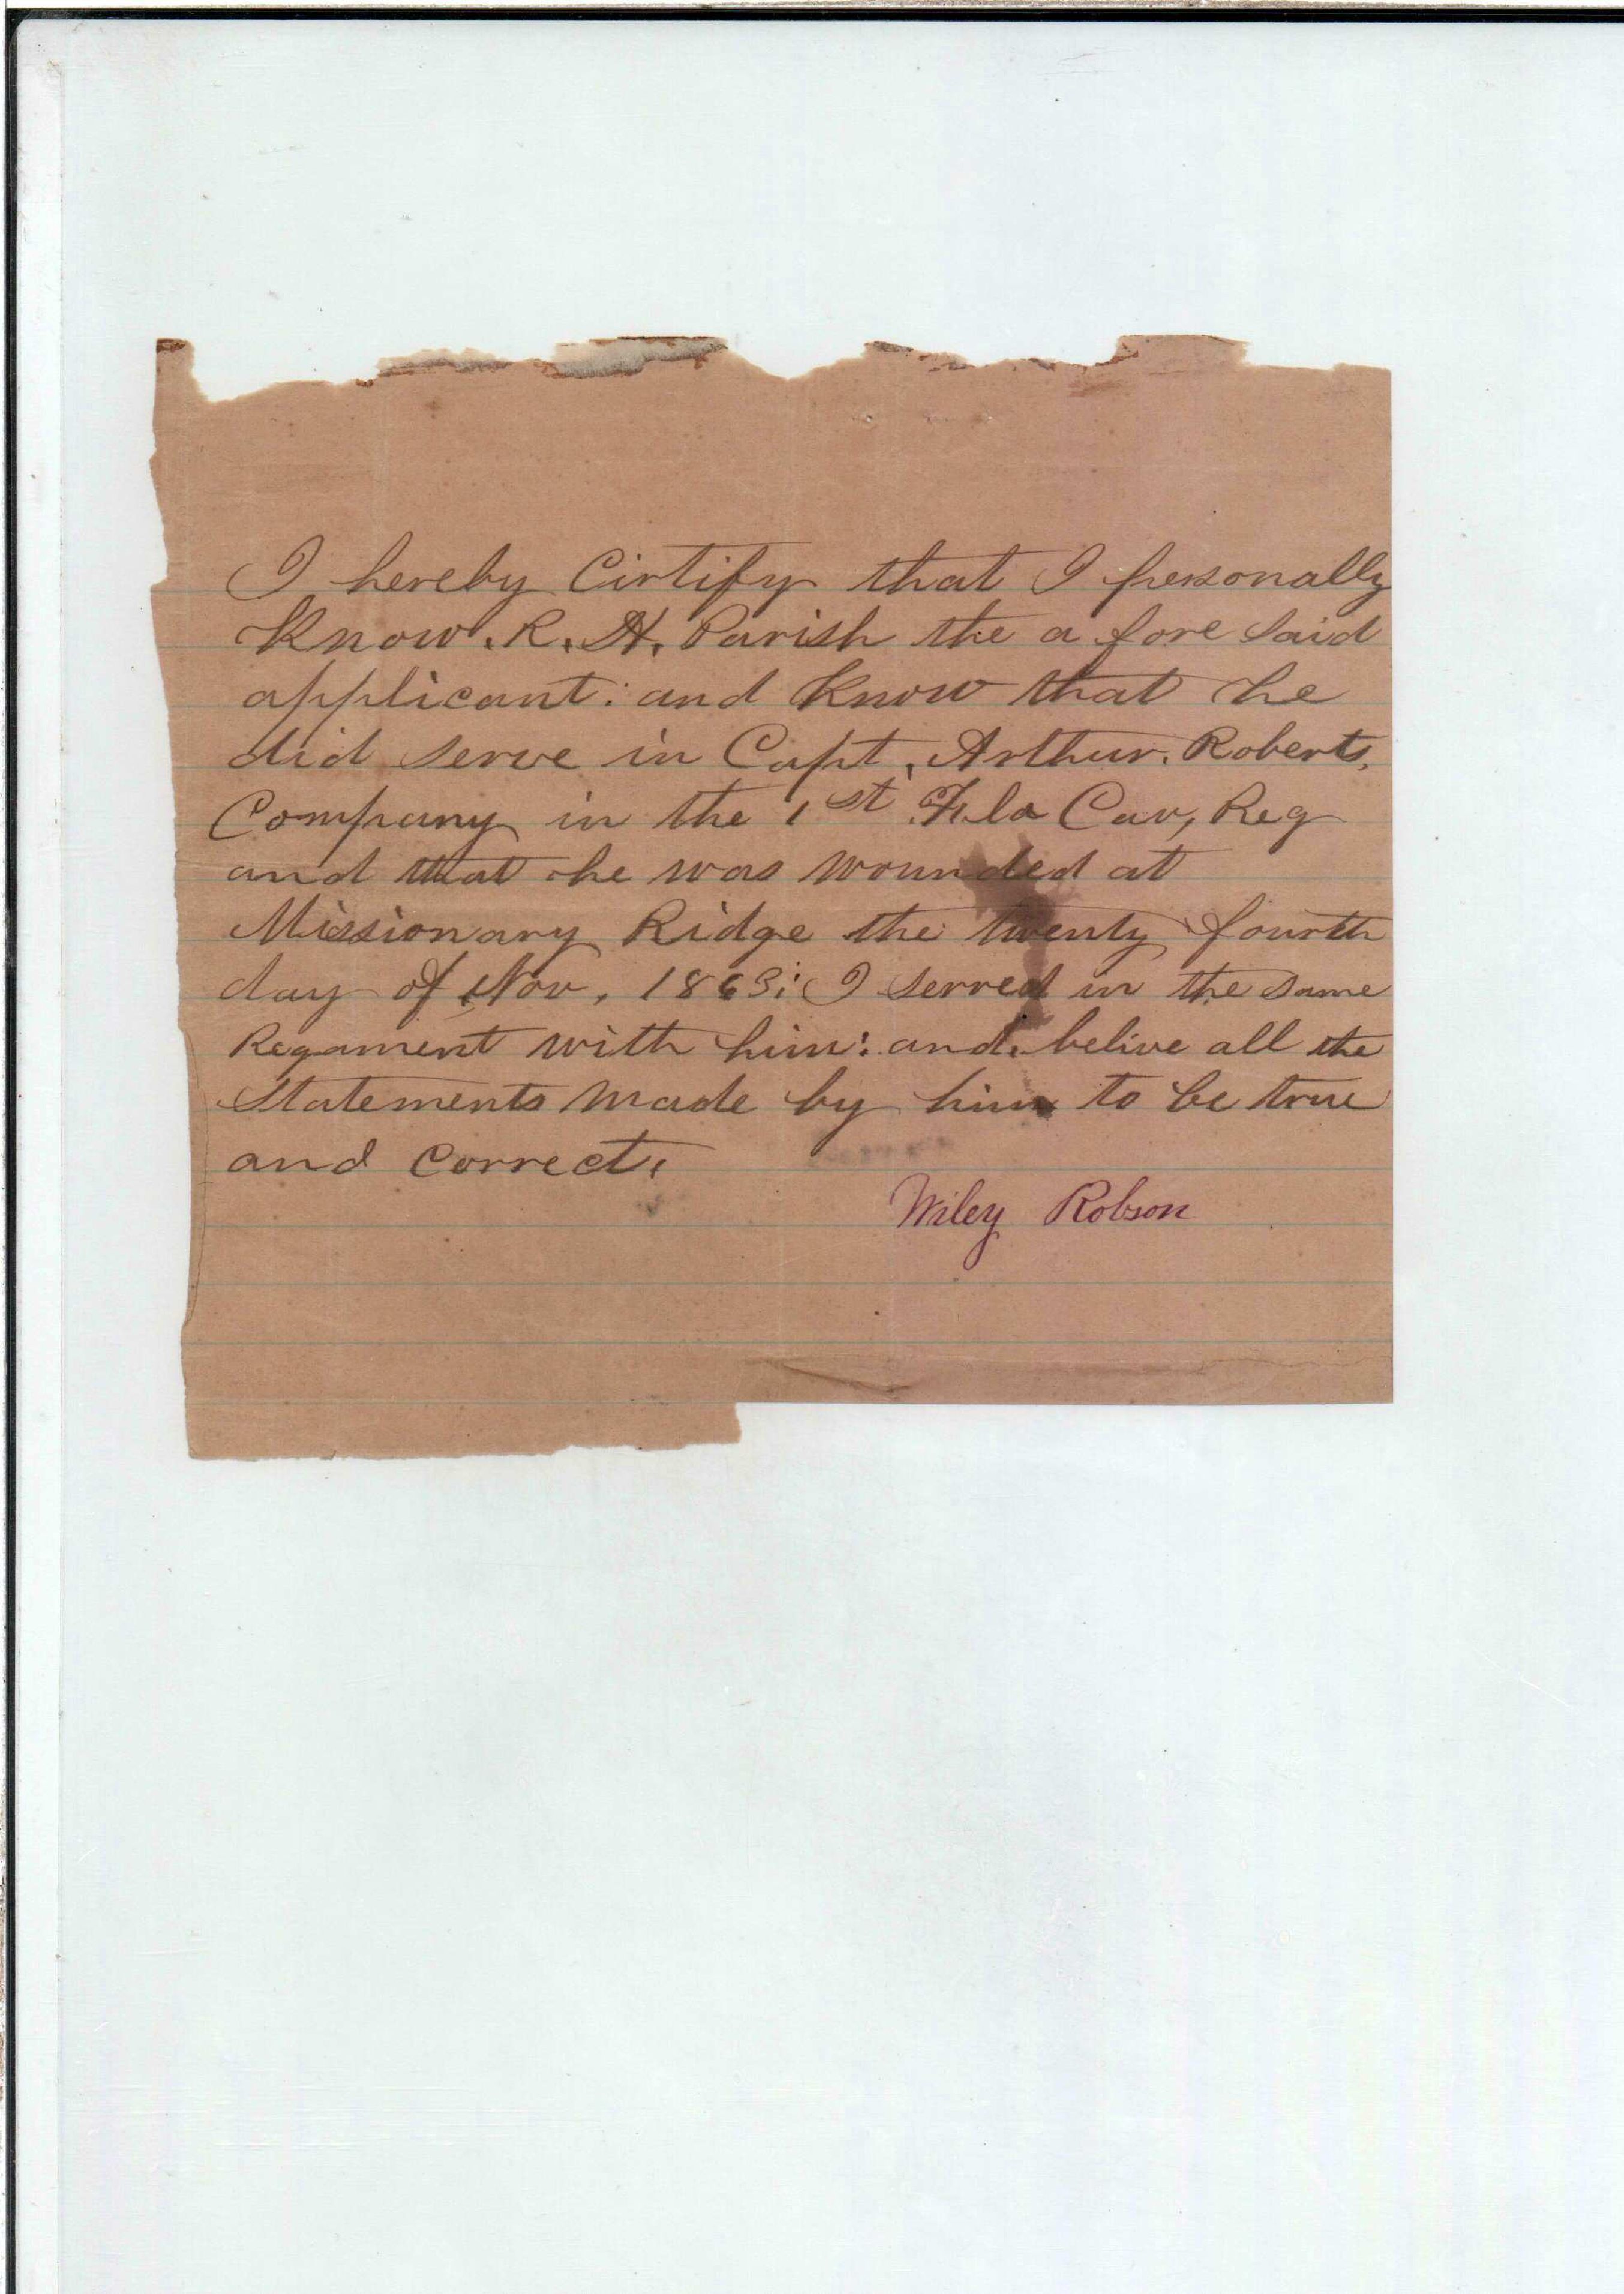 I hereby Cirtify that I personally
Know. R. H. Parish the a fore said
applicant: and Know that he
did serve in Capt, Arthur. Roberts,
Company in the 1st Fla Cav, Reg
and that he was wounded at
Missionary Ridge the twenty fourth
day of Nov, 1863: I served in the same
Regament with him: and. belive all the
Statements made by him to be true
and correct.
Wiley Robson